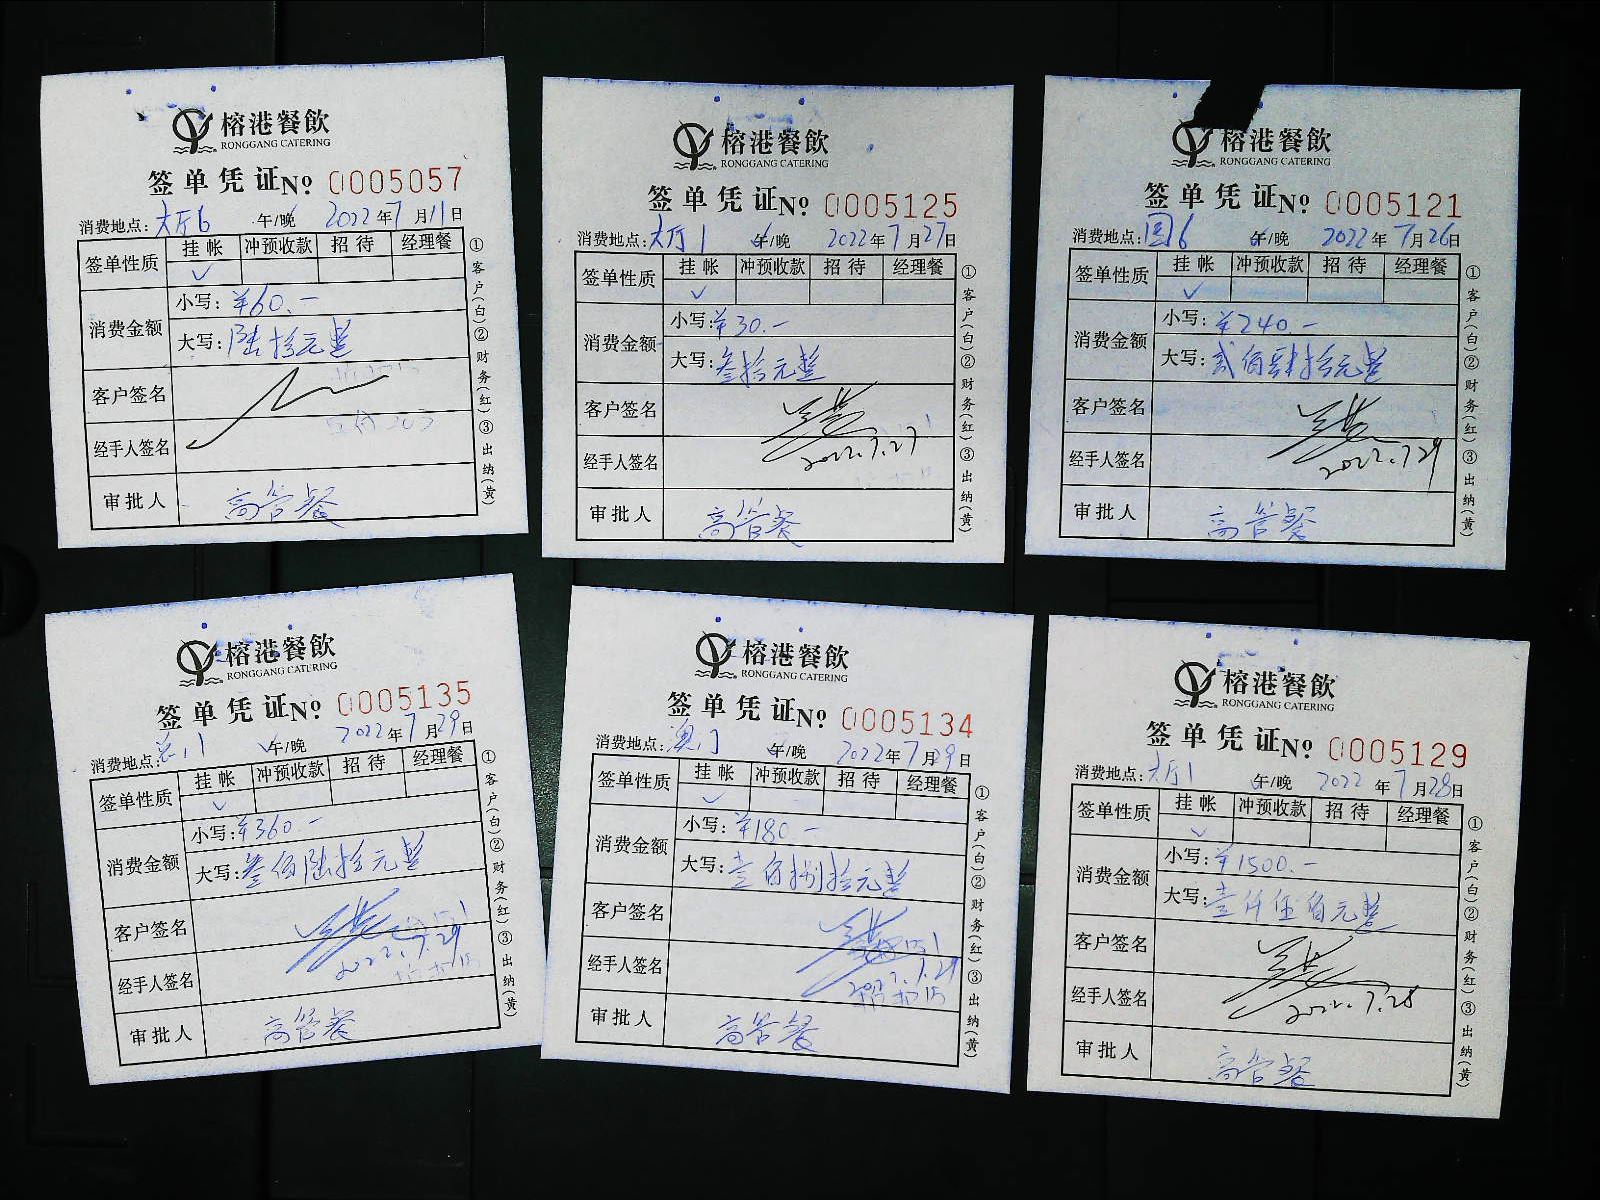 榕港餐飲
RONGGANG CATERING
签单凭证 № 0005057
消费地点：大厅6 午/晚 2022年7月11日
签单性质 挂帐 冲预收款 招待 经理餐
✓
消费金额 小写：¥60.—
大写：陆拾元整
客户签名
经手人签名
审批人 高管餐
①客户(白)②财务(红)③出纳(黄)
榕港餐飲
RONGGANG CATERING
签单凭证 № 0005125
消费地点：大厅1 午/晚 2022年7月27日
签单性质 挂帐 冲预收款 招待 经理餐
✓
消费金额 小写：¥30.—
大写：叁拾元整
客户签名
2022.7.27
经手人签名
审批人 高管餐
①客户(白)②财务(红)③出纳(黄)
榕港餐飲
RONGGANG CATERING
签单凭证 № 0005121
消费地点：园6 午/晚 2022年7月26日
签单性质 挂帐 冲预收款 招待 经理餐
✓
消费金额 小写：¥240.—
大写：贰佰肆拾元整
客户签名
经手人签名 2022.7.29
审批人 高管餐
①客户(白)②财务(红)③出纳(黄)
榕港餐飲
RONGGANG CATERING
签单凭证 № 0005135
消费地点： 午/晚 2022年7月29日
签单性质 挂帐 冲预收款 招待 经理餐
✓
消费金额 小写：¥360.—
大写：叁佰陆拾元整
客户签名
2022.7.29
经手人签名
审批人 高管餐
①客户(白)②财务(红)③出纳(黄)
榕港餐飲
RONGGANG CATERING
签单凭证 № 0005134
消费地点：澳门 午/晚 2022年7月29日
签单性质 挂帐 冲预收款 招待 经理餐
✓
消费金额 小写：¥180.—
大写：壹佰捌拾元整
客户签名
经手人签名 2022.7.29
审批人 高管餐
①客户(白)②财务(红)③出纳(黄)
榕港餐飲
RONGGANG CATERING
签单凭证 № 0005129
消费地点：大厅1 午/晚 2022年7月28日
签单性质 挂帐 冲预收款 招待 经理餐
✓
消费金额 小写：¥1500.—
大写：壹仟伍佰元整
客户签名
经手人签名 2022.7.28
审批人 高管餐
①客户(白)②财务(红)③出纳(黄)